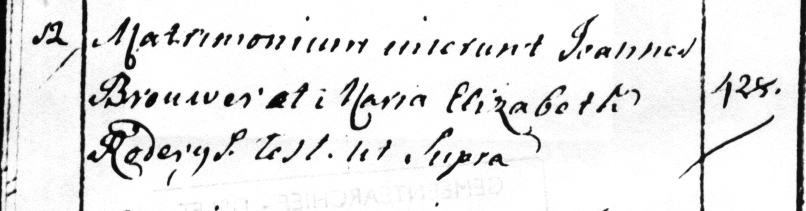 12 Matrimonium inierunt Joannes
Brouwer et Maria Elizabeth 428.
Roderys. test. ut Supra
GEMEENTEARCHIEF